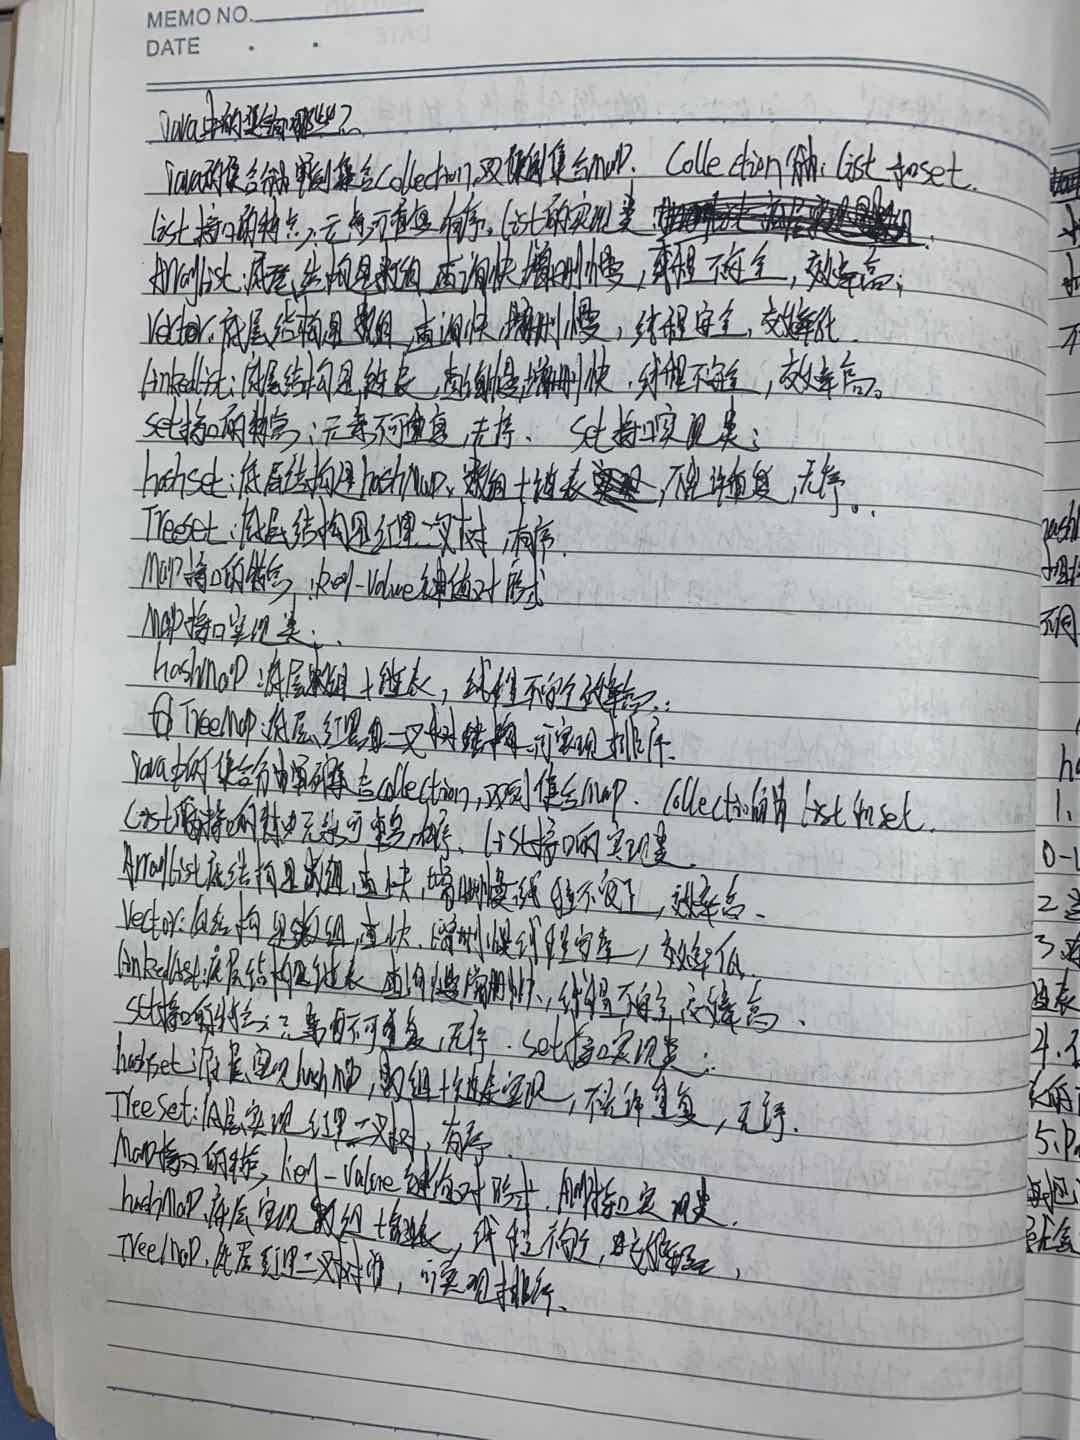 MEMO NO.
DATE . .
Java中的集合有哪些?
Java的集合分为单列集合Collection,双列集合map. Collection分为: list和set.
List接口的特点: 元素可重复有序。List的实现类
ArrayList: 底层结构是数组 查询快增删慢, 线程不安全, 效率高;
Vector: 底层结构是数组 查询快,增删慢, 线程安全, 效率低.
linkedlist: 底层结构是链表 查询慢,增删快. 线程不安全, 效率高。
set接口的特点: 元素不可重复, 无序. set接口实现类:
hashset: 底层结构是hashMap, 数组+链表实现, 不允许重复, 无序。
Treeset: 底层结构是红黑二叉树, 有序.
Map接口的特点: key-Value键值对形式
map接口实现类:
hashMap: 底层数组+链表, 线程不安全效率高.
TreeMap: 底层红黑二叉树 可实现排序.
Java中的集合分为单列集合collection,双列集合map. Collection分为 list和set.
List接口的特点元素可重复有序. List接口的实现类.
ArrayList底结构是数组, 查快, 增删慢线程不安全, 效率高.
Vector: 底结构是数组, 查快. 增删慢线程安全, 效率低.
linkedlist: 底层结构是链表 查询慢增删快, 线程不安全 效率高.
set接口的特点: 元素不可重复, 无序. set接口实现类:
hashset: 底层实现hashMap, 数组+链表实现, 不允许重复, 无序.
TreeSet: 底层实现红黑二叉树, 有序.
Map接口的特点, key-Value键值对形式. map接口实现类.
hashMap. 底层实现数组+链表, 线程不安全, 效率高,
TreeMap. 底层红黑二叉树, 可实现排序.